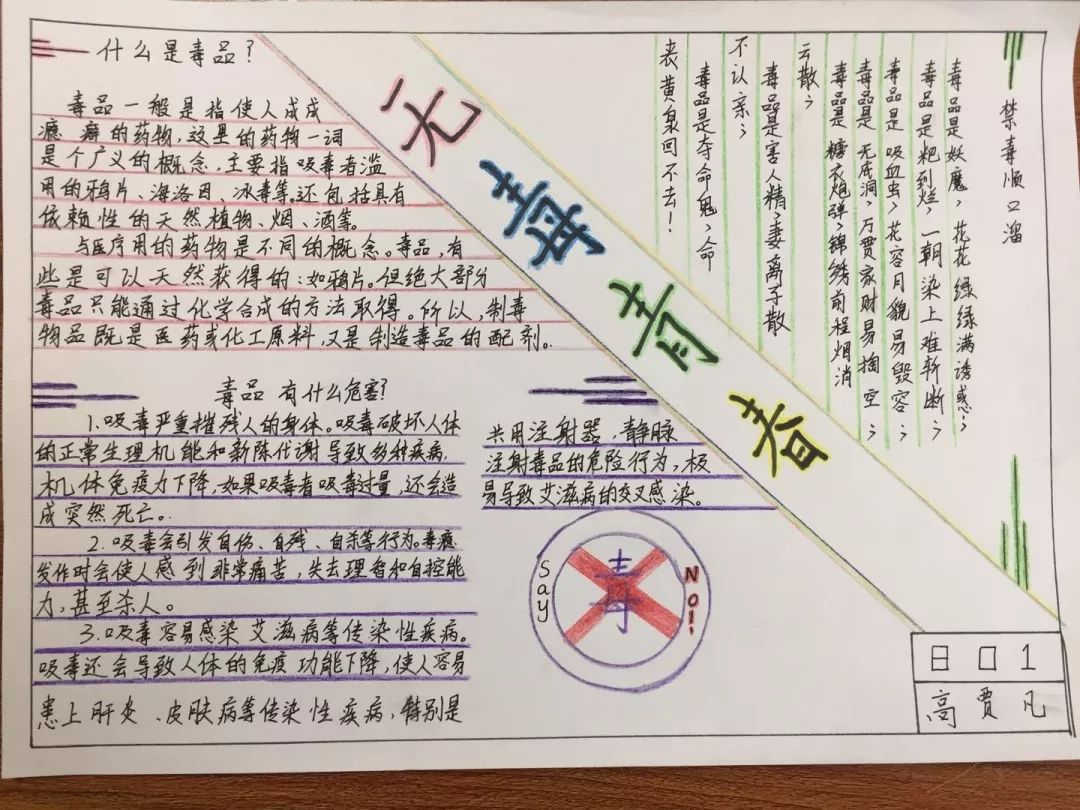 无毒青春
什么是毒品?
毒品一般是指使人成成
瘾癖的药物,这里的药物一词
是个广义的概念,主要指吸毒者滥
用的鸦片、海洛因、冰毒等。还包括具有
依赖性的天然植物、烟、酒等。
与医疗用的药物是不同的概念。毒品,有
些是可以天然获得的:如鸦片。但绝大部分
毒品只能通过化学合成的方法取得。所以,制毒
物品既是医药或化工原料,又是制造毒品的配剂。
毒品有什么危害?
1.吸毒严重摧残人的身体。吸毒破坏人体
的正常生理机能和新陈代谢导致多种疾病,
机体免疫力下降,如果吸毒者吸毒过量,还会造
成突然死亡。
2.吸毒会引发自伤、自残、自杀等行为。毒瘾
发作时会使人感到非常痛苦,失去理智和自控能
力,甚至杀人。
3.吸毒容易感染艾滋病等传染性疾病。
吸毒还会导致人体的免疫功能下降,使人容易
患上肝炎、皮肤病等传染性疾病,特别是
共用注射器、静脉
注射毒品的危险行为,极
易导致艾滋病的交叉感染。
Say
毒
NO!!
禁毒顺口溜
毒品是妖魔,花花绿绿满诱惑;
毒品是粑到烂,一朝染上难斩断;
毒品是吸血虫,花容月貌易毁容;
毒品是无底洞,万贾家财易掏空;
毒品是糖衣炮弹,锦绣前程烟消
云散;
毒品是害人精,妻离子散
不认亲;
毒品是夺命鬼,命
丧黄泉回不去!
日口1
高贾凡